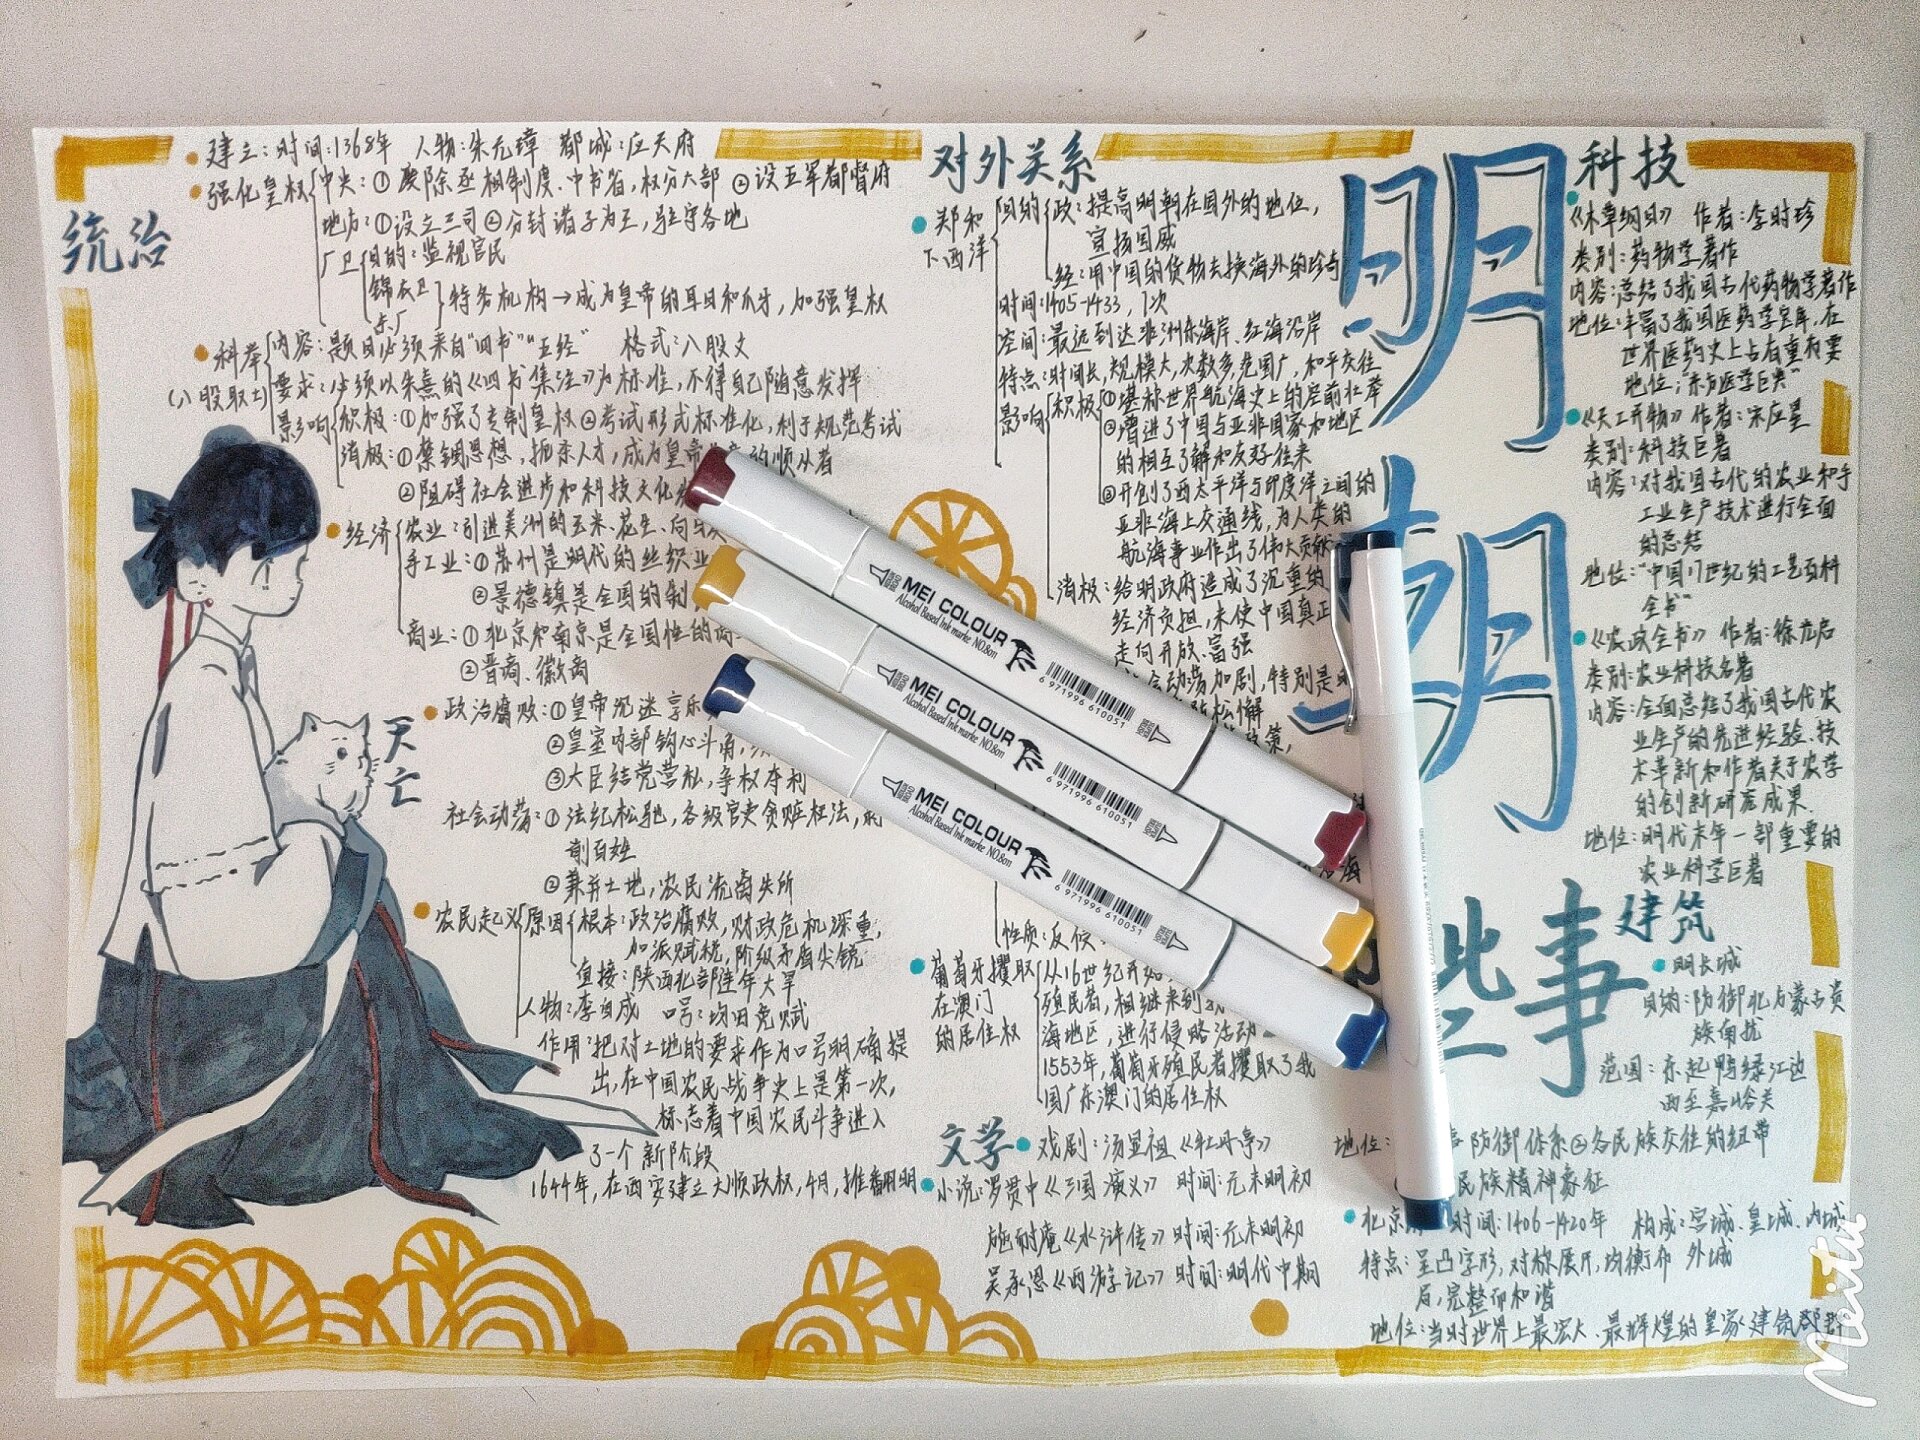 统治
建立：时间：1368年 人物：朱元璋 都城：应天府
强化皇权 中央：①废除丞相制度、中书省，权分六部 ②设五军都督府
地方：①设立三司②分封诸子为王，驻守各地
厂卫 目的：监视官民
锦衣卫
东厂
特务机构→成为皇帝的耳目和爪牙，加强皇权
科举
(八股取士)
内容：题目必须来自“四书”“五经” 格式：八股文
要求：必须以朱熹的《四书集注》为标准，不得自己随意发挥
影响 积极：①加强了专制皇权②考试形式标准化，利于规范考试
消极：①禁锢思想，扼杀人才，成为皇帝 的顺从者
②阻碍社会进步和科技文化
经济 农业：引进美洲的玉米、花生、向
手工业：①苏州是明代的丝织业
②景德镇是全国的制
商业：①北京和南京是全国性的商
②晋商、徽商
灭亡
政治腐败：①皇帝沉迷享乐
②皇室内部钩心斗角，
③大臣结党营私，争权夺利
社会动荡：①法纪松驰，各级官吏贪赃枉法，
削百姓
②兼并土地，农民流离失所
农民起义 原因 根本：政治腐败，财政危机深重，
加派赋税，阶级矛盾尖锐
直接：陕西北部连年大旱
人物：李自成 口号：均田免赋
作用：把对土地的要求作为口号明确提
出，在中国农民战争史上是第一次，
标志着中国农民斗争进入
了一个新阶段
1644年，在西安建立大顺政权，4月，推翻明
对外关系
郑和
下西洋
目的 政：提高明朝在国外的地位，
宣扬国威
经：用中国的货物去换海外的珍奇
时间：1405-1433，7次
空间：最远到达非洲东海岸、红海沿岸
特点：时间长，规模大，次数多，范围广，和平交往
影响 积极 ①堪称世界航海史上的空前壮举
②增进了中国与亚非国家和地区
的相互了解和友好往来
③开创了西太平洋与印度洋之间的
亚非海上交通线，为人类的
航海事业作出了伟大贡献
消极：给明政府造成了沉重的
经济负担，未使中国真正
走向开放、富强
动荡加剧，特别是
松懈
策，
海
性质：反侵
葡萄牙攫取
在澳门
的居住权
从16世纪开始
殖民者，相继来到
海地区，进行侵略活动
1553年，葡萄牙殖民者攫取了我
国广东澳门的居住权
文学
戏剧：汤显祖《牡丹亭》
小说：罗贯中《三国演义》 时间：元末明初
施耐庵《水浒传》 时间：元末明初
吴承恩《西游记》 时间：明代中期
明
朝
些
事
科技
《本草纲目》 作者：李时珍
类别：药物学著作
内容：总结了我国古代药物学著作
地位：丰富了我国医药学宝库，在
世界医药史上占有重要
地位；“东方医学巨典”
《天工开物》 作者：宋应星
类别：科技巨著
内容：对我国古代的农业和手
工业生产技术进行全面
的总结
地位：“中国17世纪的工艺百科
全书”
《农政全书》 作者：徐光启
类别：农业科技名著
内容：全面总结了我国古代农
业生产的先进经验、技
术革新和作者关于农学
的创新研究成果.
地位：明代末年一部重要的
农业科学巨著
建筑
明长城
目的：防御北方蒙古贵
族南扰
范围：东起鸭绿江边
西至嘉峪关
地位： 防御体系②各民族交往的纽带
民族精神象征
北京 时间：1406-1420年 构成：宫城、皇城、内城
外城
特点：呈凸字形，对称展开，均衡布
局，完整而和谐
地位：当时世界上最宏大、最辉煌的皇家建筑群
MEI COLOUR
Alcohol Based Ink marke NO.8on
6 971996 610051
MEI COLOUR
Alcohol Based Ink marke NO.8on
6 971996 610051
MEI COLOUR
Alcohol Based Ink marke NO.8on
6 971996 610051
Meitu